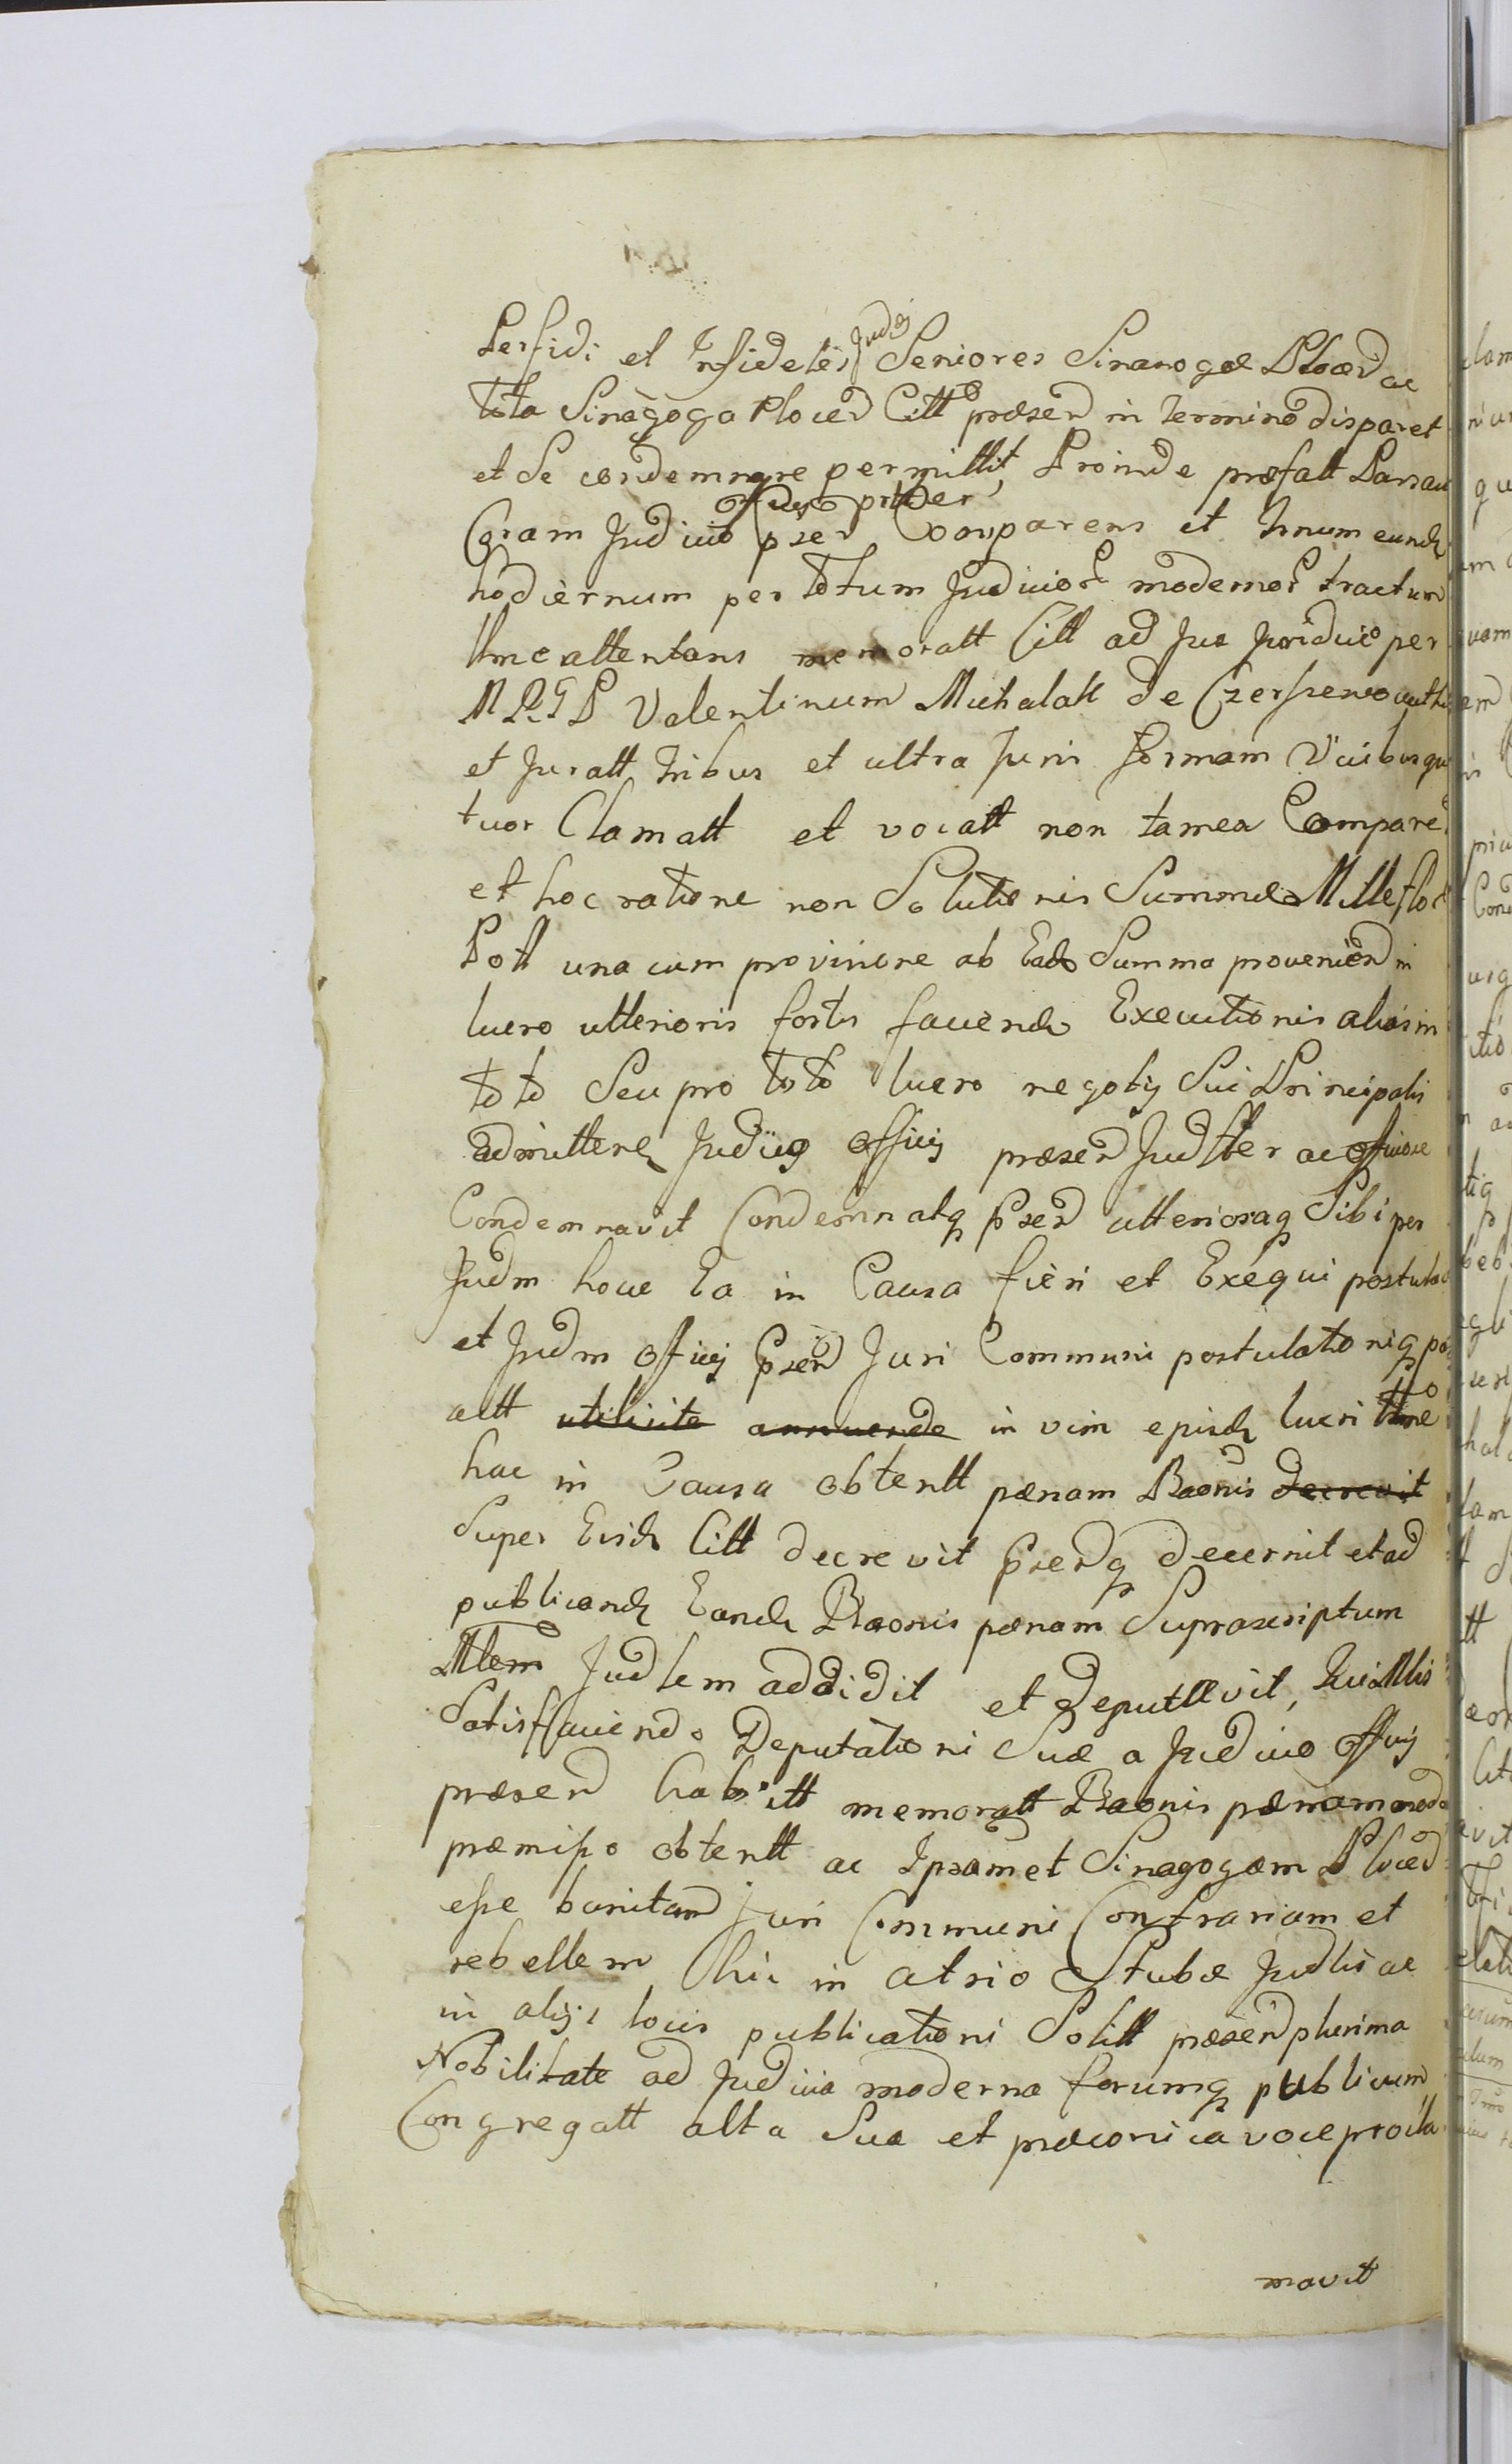 Perfidi et Infideles Judei Seniores Sinanogæ Ploced ac
tota Sinagoga Ploced Citt præsend in termino disparet
et Se condemnare permittit, Proinde præfatt Parsau
Coram Judicio Officij pser Comparens et tmnum eund
hodiernum per totum Judicior modernor tractum
tmne attentans memoratt Citt ad Jus Juridice per
Valentinum Michalatt de Czersiewo
et Juratt tribus et ultra Juris formam Vicibus qu
tuor Clamatt et vocatt non tamen Compare
et hoc ratione non Solutionis Summæ Mille flor
Poll una cum provisione ab Ead Summa provenien in
lucro ulterioris fortis faciend Executionis alias in
toto Seu pro toto lucro negotij Sui Principalis
admittend Judicio officij præsend Judlter ac officiose
Condemnavit Condemnatq præsend ulterioraq Sibi per
Judm hocce Ea in Causa fieri et Exequi postulav
et Judm officij præsend Juri Communi postulationiq par
att utilicite annuende in vim episd lucri tmne
hac in Causa obtentt pænam Baonis decrevit
Super Eisd Citt decrevit præsendq decernit et ad
publicand Eand Baonis pænam Suprascriptum
Mlem Judlem addidit et deputtavit, Qui Mlis
Satisfaciendo Deputationi Suæ a Judicio officij
præsend habitt memoratt Baonis pænam modo
præmisso obtentt ac Ipsamet Sinagogam Ploced
esse banitam Juri Communi Contrariam et
rebellem hic in atrio Stubæ Judlis ac
in alijs locis publicationi Solitt præsend plurima
Nobilitate ad Judicia moderna forumq publicum
Congregatt alta Sua et præconica voce procla
mavit